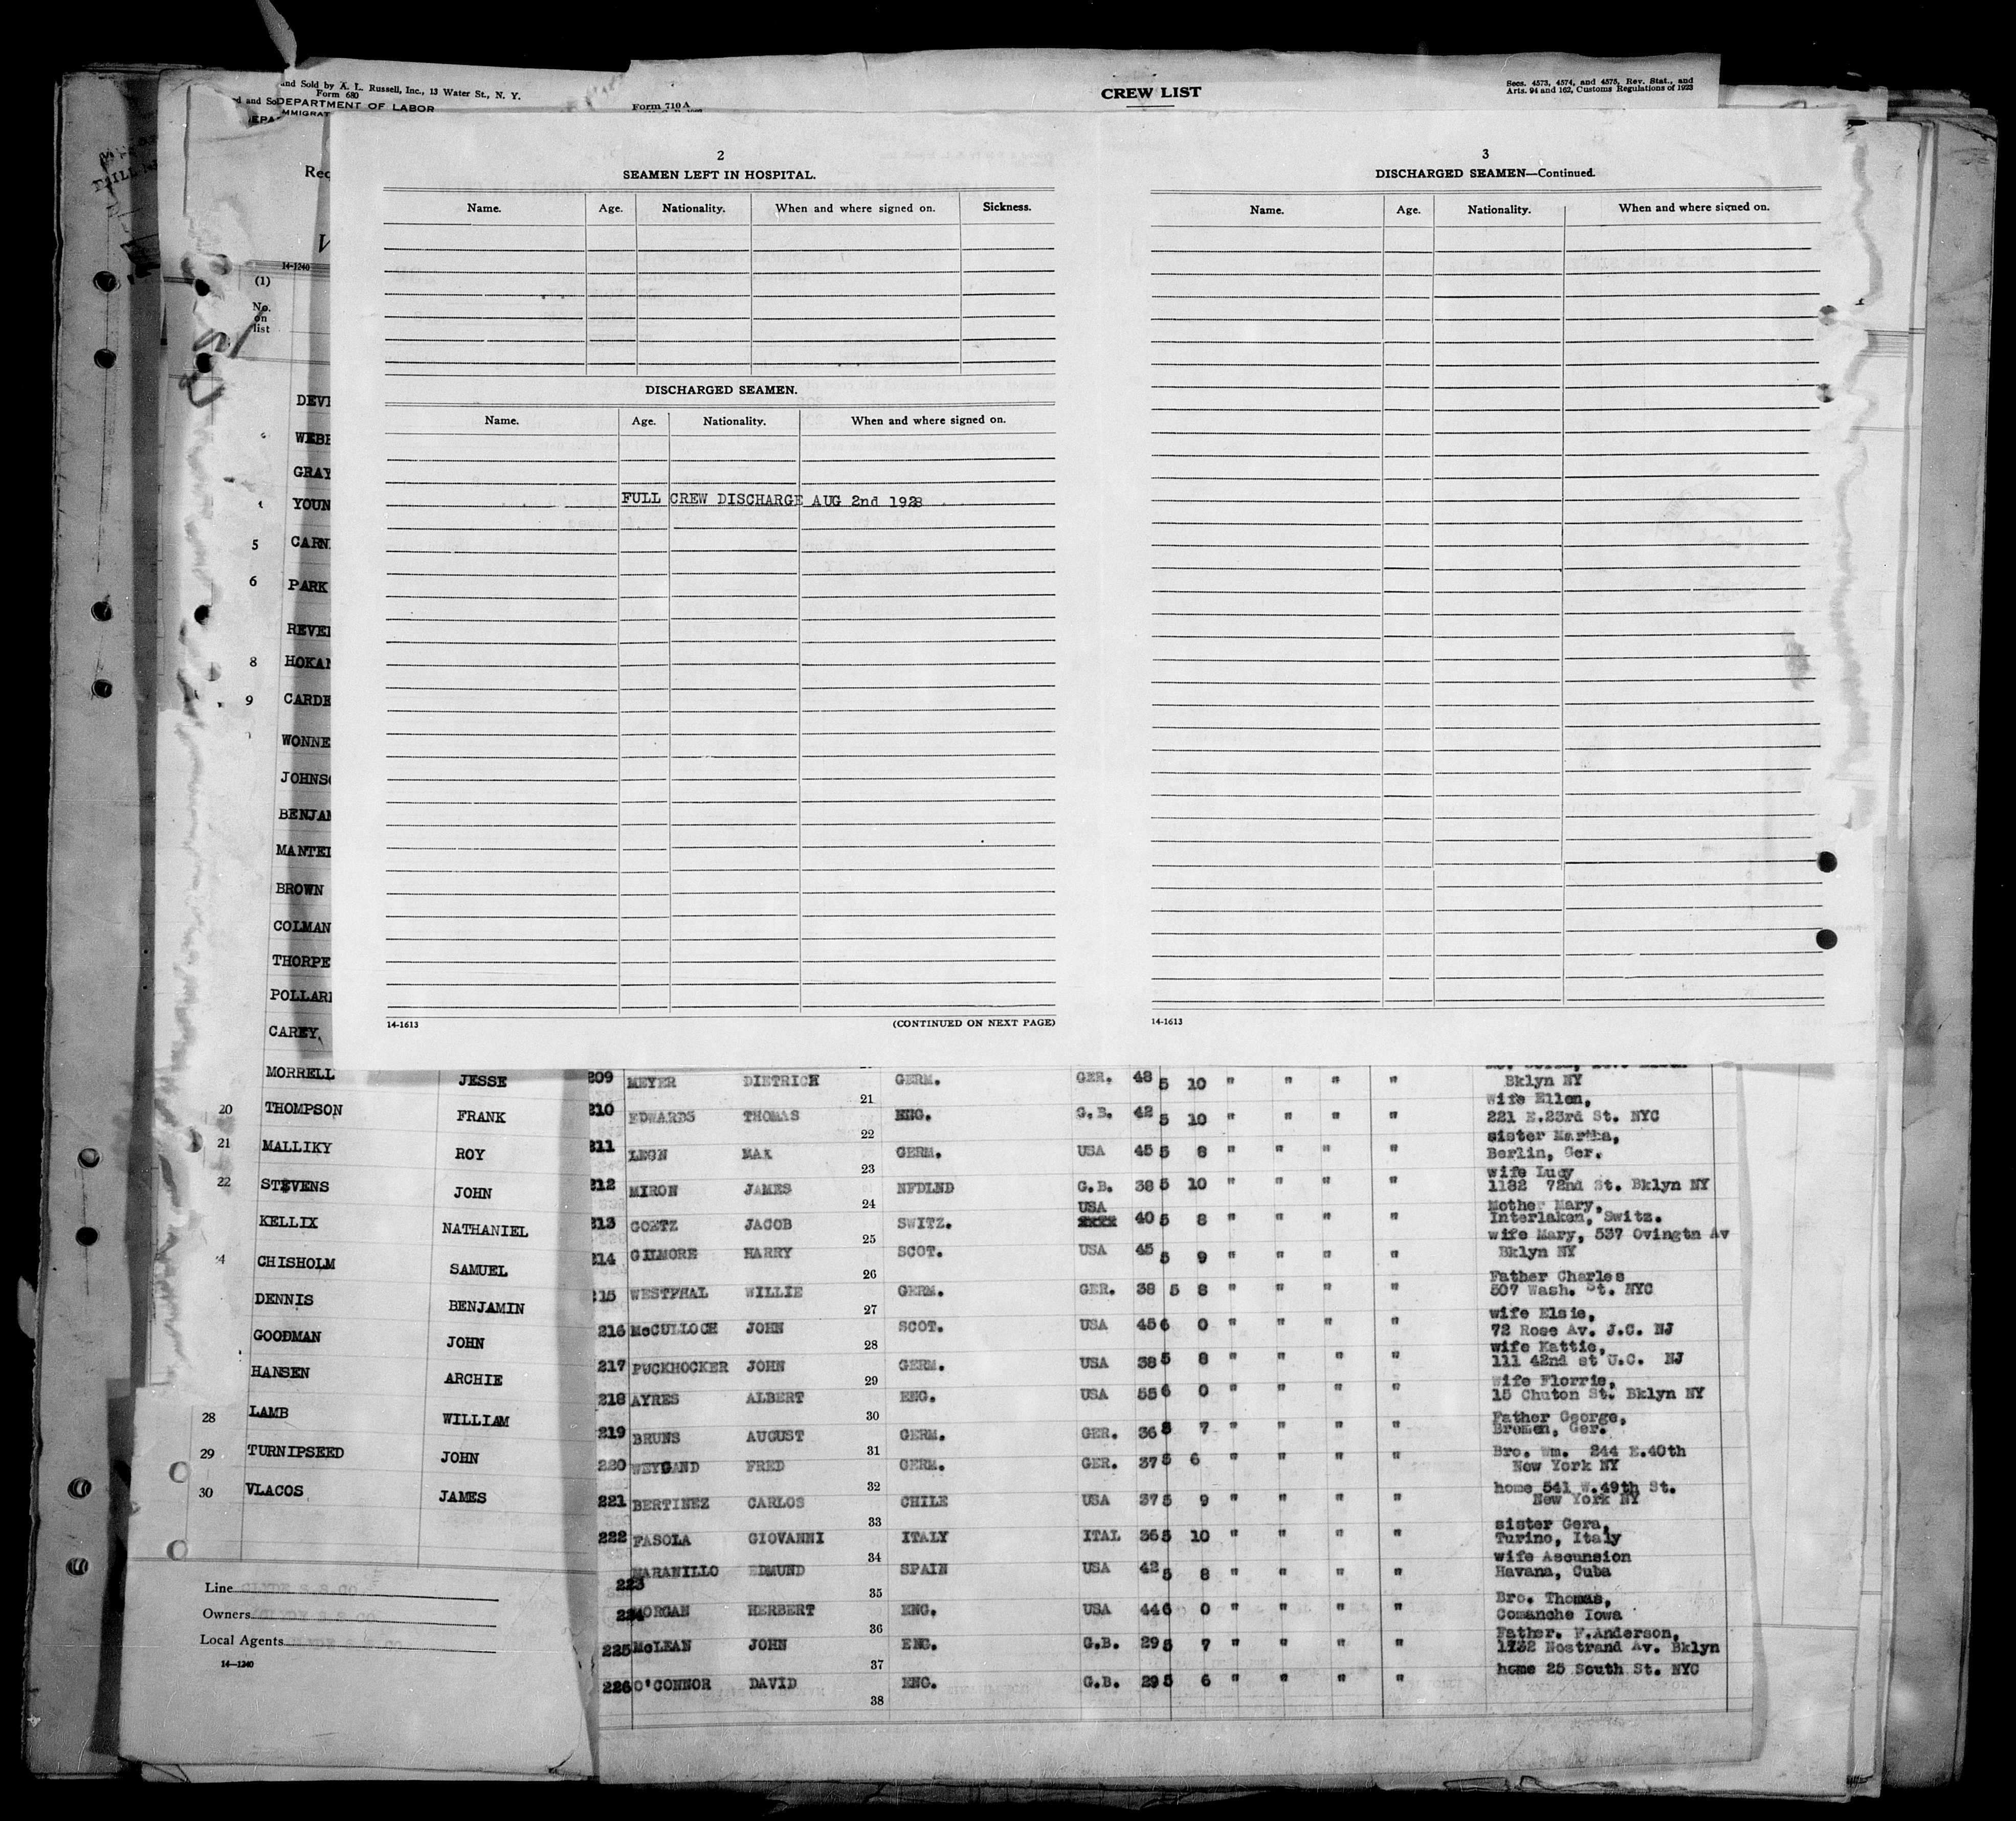 and Sold by A. L. Russell, Inc., 13 Water St., N. Y.
Form 680
DEPARTMENT OF LABOR
Form 710 A
CREW LIST
Secs. 4573, 4574, and 4575, Rev. Stat., and
Arts. 94 and 162, Customs Regulations of 1923
14-1240
(1)
No.
on
list
2
SEAMEN LEFT IN HOSPITAL.
Name. Age. Nationality. When and where signed on. Sickness.
DISCHARGED SEAMEN.
Name. Age. Nationality. When and where signed on.
FULL CREW DISCHARGE AUG 2nd 1928
14-1613 (CONTINUED ON NEXT PAGE)
3
DISCHARGED SEAMEN—Continued.
Name. Age. Nationality. When and where signed on.
14-1613
DEVE
WEBB
GRAY
YOUN
5 CARN
6 PARK
REVE
8 HOKAN
9 CARDE
WONNE
JOHNSO
BENJAM
MANTEL
BROWN
COLMAN
THORPE
POLLARD
CAREY,
MORRELL JESSE
20 THOMPSON FRANK
21 MALLIKY ROY
22 STEVENS JOHN
KELLIX NATHANIEL
4 CHISHOLM SAMUEL
DENNIS BENJAMIN
GOODMAN JOHN
HANSEN ARCHIE
28 LAMB WILLIAM
29 TURNIPSEED JOHN
30 VLACOS JAMES
Line CLYDE S.S. CO
Owners
Local Agents
14—1240
209 MEYER DIETRICH GERM. GER. 48 5 10 " " " " Bklyn NY
21
wife Ellen,
210 EDWARDS THOMAS ENG. G.B. 42 5 10 " " " " 221 E.23rd St. NYC
22
sister Martha,
211 LEON MAX GERM. USA 45 5 8 " " " " Berlin, Ger.
23
wife Lucy
212 MIRON JAMES NFDLND G.B. 38 5 10 " " " " 1182 72nd St. Bklyn NY
24
USA Mother Mary,
213 GOETZ JACOB SWITZ. 40 5 8 " " " " Interlaken, Switz.
25
wife Mary, 537 Ovingtn Av
214 GILMORE HARRY SCOT. USA 45 5 9 " " " " Bklyn NY
26
Father Charles
215 WESTPHAL WILLIE GERM. GER. 38 5 8 " " " " 507 Wash. St. NYC
27
wife Elsie,
216 McCULLOCH JOHN SCOT. USA 45 6 0 " " " " 72 Rose Av. J.C. NJ
28
wife Kattie,
217 PUCKHOCKER JOHN GERM. USA 38 5 8 " " " " 111 42nd st U.C. NJ
29
wife Florrie,
218 AYRES ALBERT ENG. USA 55 6 0 " " " " 15 Chuton St. Bklyn NY
30
Father George,
219 BRUNS AUGUST GERM. GER. 36 5 7 " " " " Bremen, Ger.
31
Bro. Wm. 244 E.40th
220 WEYGAND FRED GERM. GER. 37 5 6 " " " " New York NY
32
home 541 W.49th St.
221 BERTINEZ CARLOS CHILE USA 37 5 9 " " " " New York NY
33
sister Gera,
222 FASOLA GIOVANNI ITALY ITAL 36 5 10 " " " " Turino, Italy
34
wife Ascunsion
223 MARANILLO EDMUND SPAIN USA 42 5 8 " " " " Havana, Cuba
35
Bro. Thomas,
224 MORGAN HERBERT ENG. USA 44 6 0 " " " " Comanche Iowa
36
Father. F.Anderson,
225 McLEAN JOHN ENG. G.B. 29 5 7 " " " " 1732 Nostrand Av. Bklyn
37
226 O'CONNOR DAVID ENG. G.B. 29 5 6 " " " " home 25 South St. NYC
38